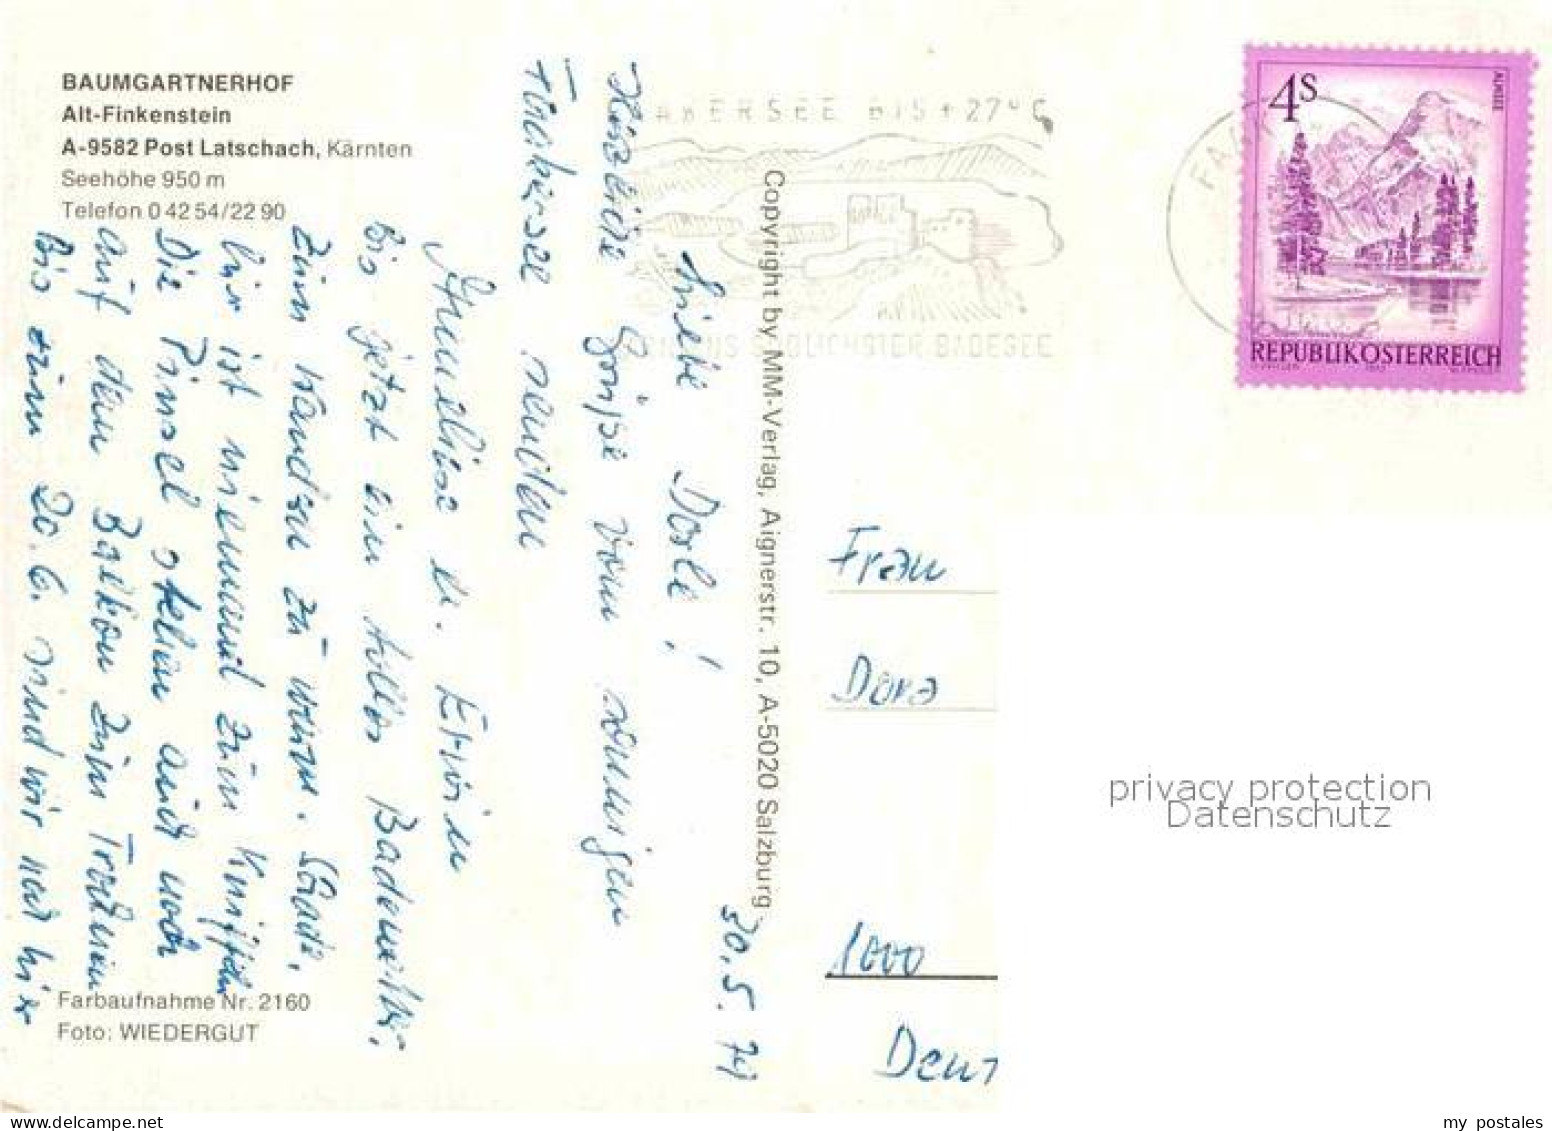 BAUMGARTNERHOF
Alt-Finkenstein
A-9582 Post Latschach, Kärnten
Seehöhe 950 m
Telefon 0 42 54/22 90
AKERSEE BIS + 27° C
BADESEE
4S
ALMSEE
REPUBLIK ÖSTERREICH
Copyright by MM-Verlag, Aignerstr. 10, A-5020 Salzburg
30. 5. 74
Liebe Dorle!
Herzliche Grüße vom sonnigen
Faakersee senden
Anneliese u. Erwin
Bis jetzt ein tolles Badewetter,
zum wandern zu warm. Schade,
hier ist niemand zum Kniffeln
Die Pinsel stehen auch noch
auf dem Balkon zum Trocknen
Bis zum 20. 6. sind wir noch hier
Frau
Dora
1000
privacy protection
Datenschutz
Farbaufnahme Nr. 2160
Foto: WIEDERGUT
my postales